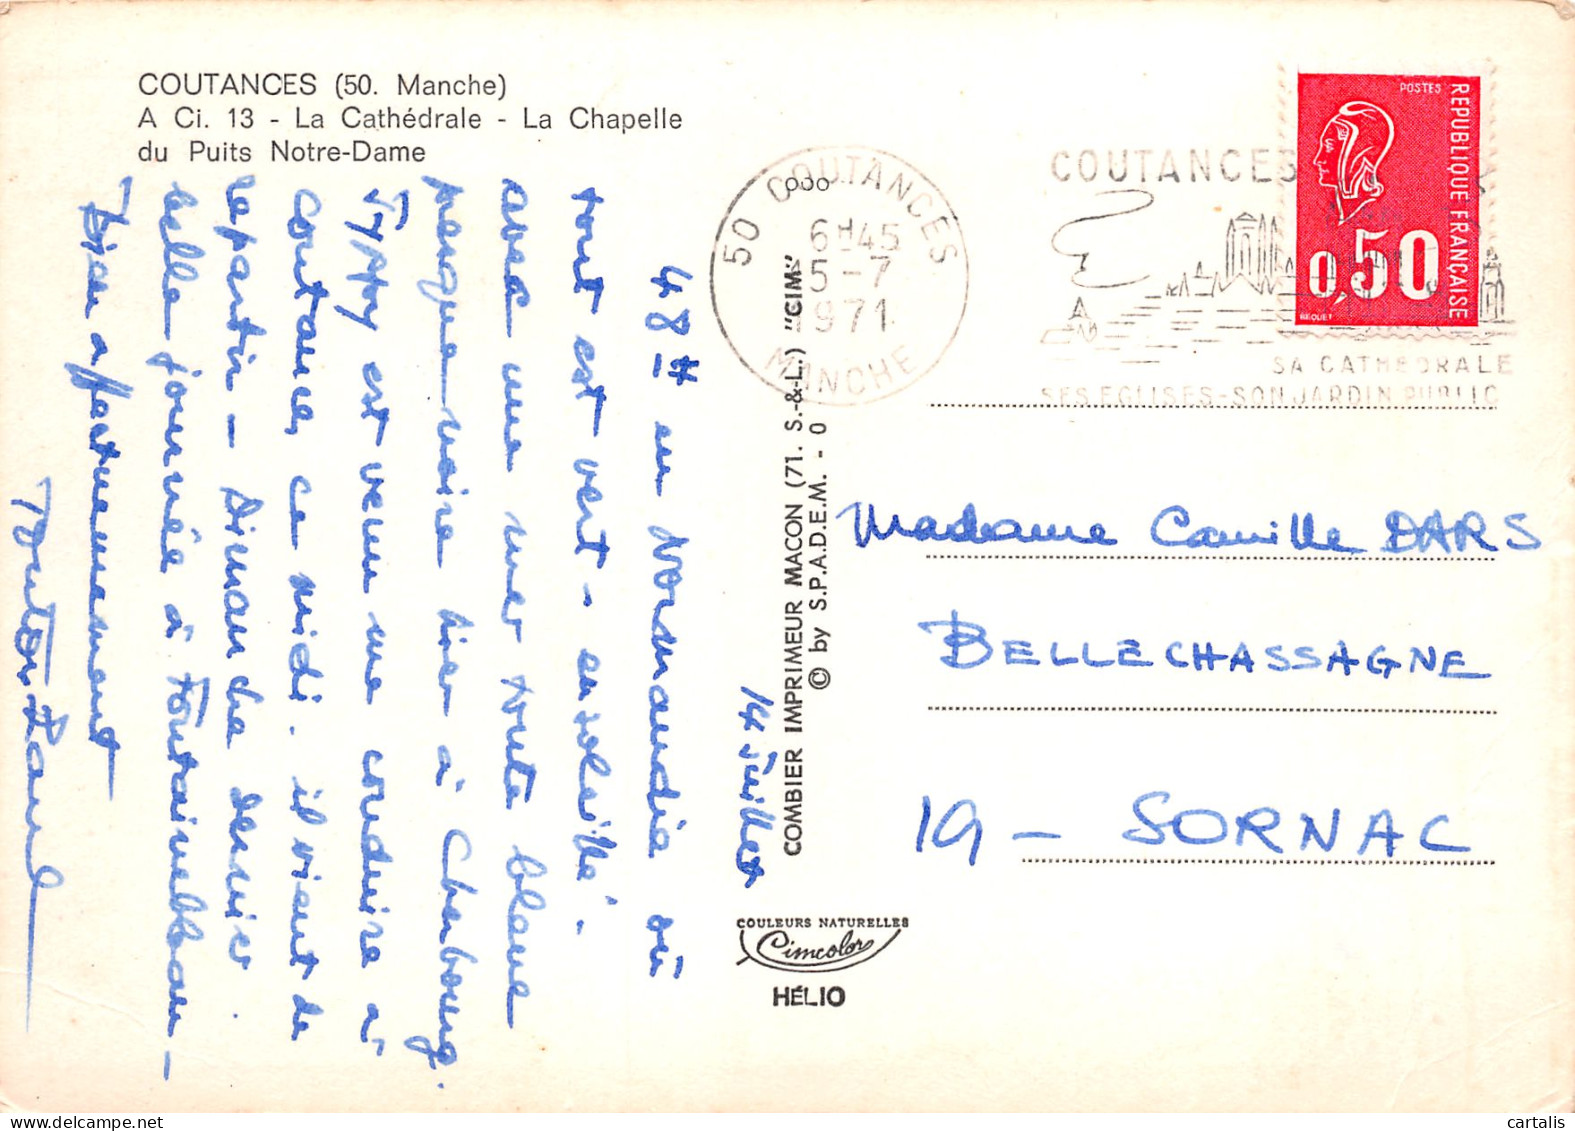 COUTANCES (50. Manche)
A Ci. 13 - La Cathédrale - La Chapelle
du Puits Notre-Dame
14 Juillet
48 H en Normandie où
tout est vert - ensoleillé.
avec une mer toute bleue
presque noire hier à Cherbourg.
est venu me conduire à
Coutances, ce midi. il vient de
repartir - Dimanche dernier.
belle journée à Fontainebleau -
Bien affectueusement
Tonton
COMBIER IMPRIMEUR MACON (71. S.-&-L.) "CIM"
© by S.P.A.D.E.M. - 0
COULEURS NATURELLES
Cimcolor
HÉLIO
50 COUTANCES
6H45
15-7
1971
MANCHE
COUTANCES
SA CATHEDRALE
SES EGLISES-SON JARDIN PUBLIC
POSTES
REPUBLIQUE FRANÇAISE
0,50
BEQUET
Madame Camille DARS
BELLECHASSAGNE
19 - SORNAC
cartalis